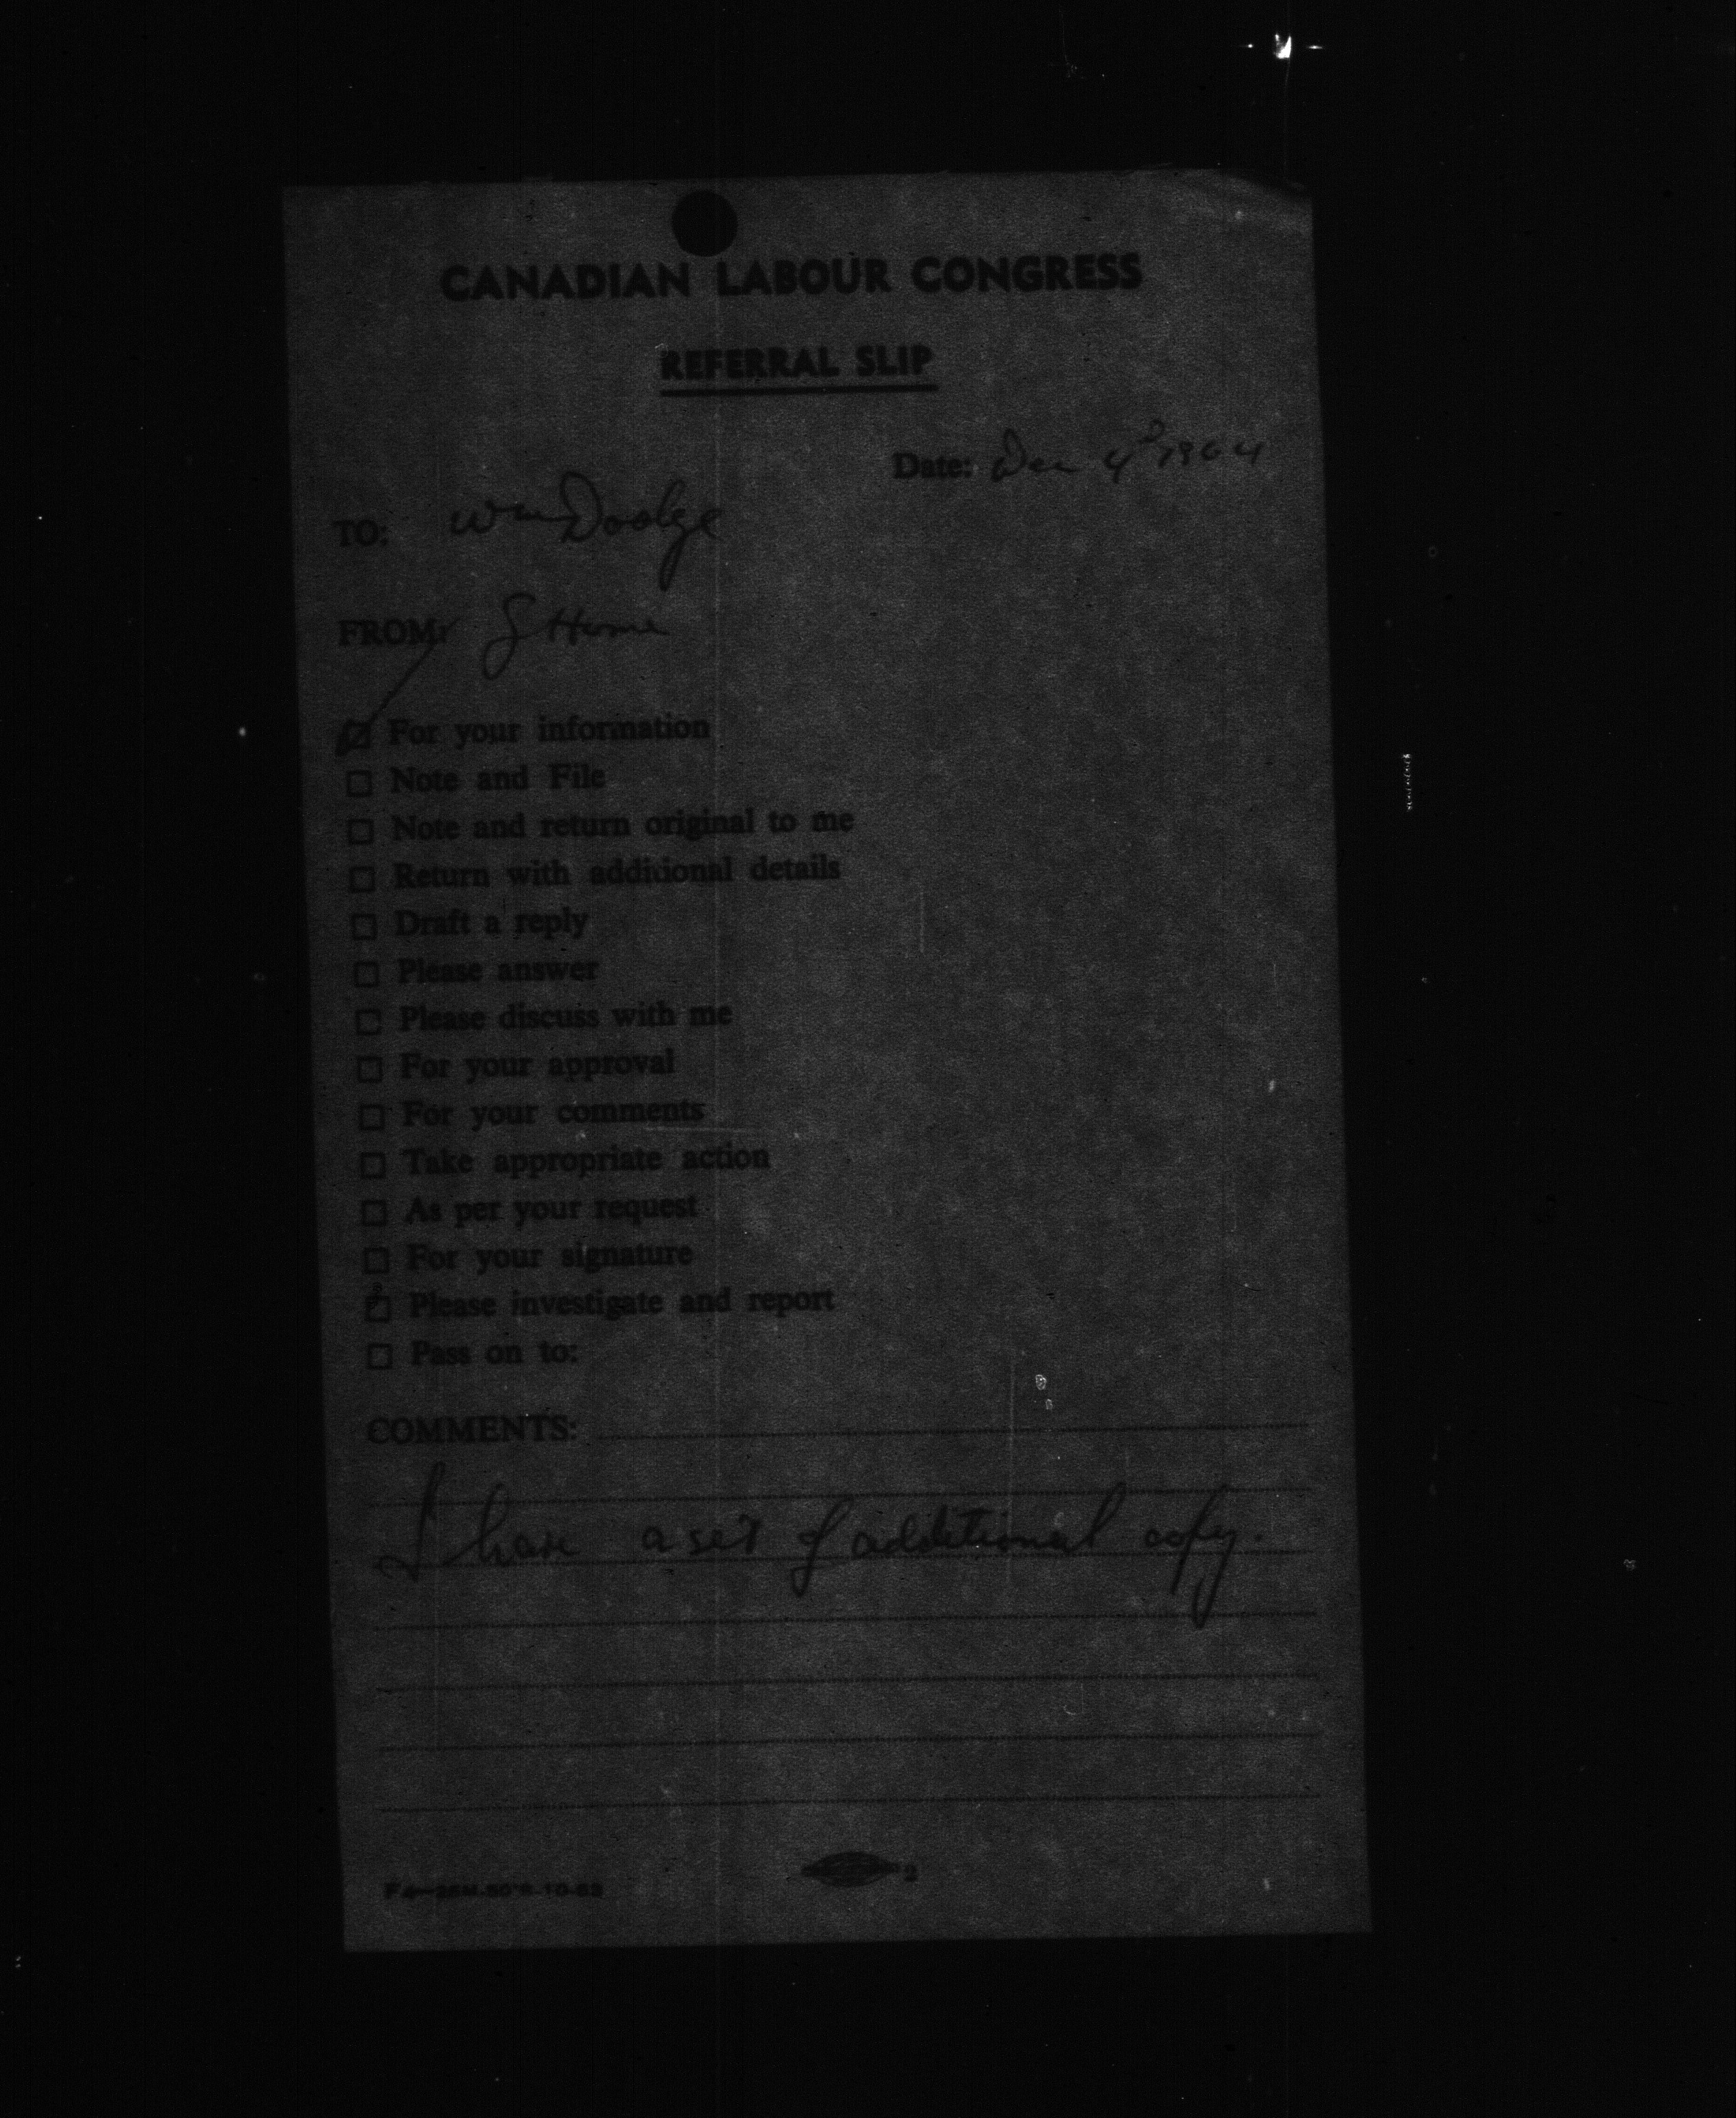 CANADIAN LABOUR CONGRESS
REFERRAL SLIP
Date: Dec 4 1964
TO: Wm Dodge
FROM: G Home
☑ For your information
☐ Note and File
☐ Note and return original to me
☐ Return with additional details
☐ Draft a reply
☐ Please answer
☐ Please discuss with me
☐ For your approval
☐ For your comments
☐ Take appropriate action
☐ As per your request
☐ For your signature
☐ Please investigate and report
☐ Pass on to:
COMMENTS:
I have a set of additional copy.
2